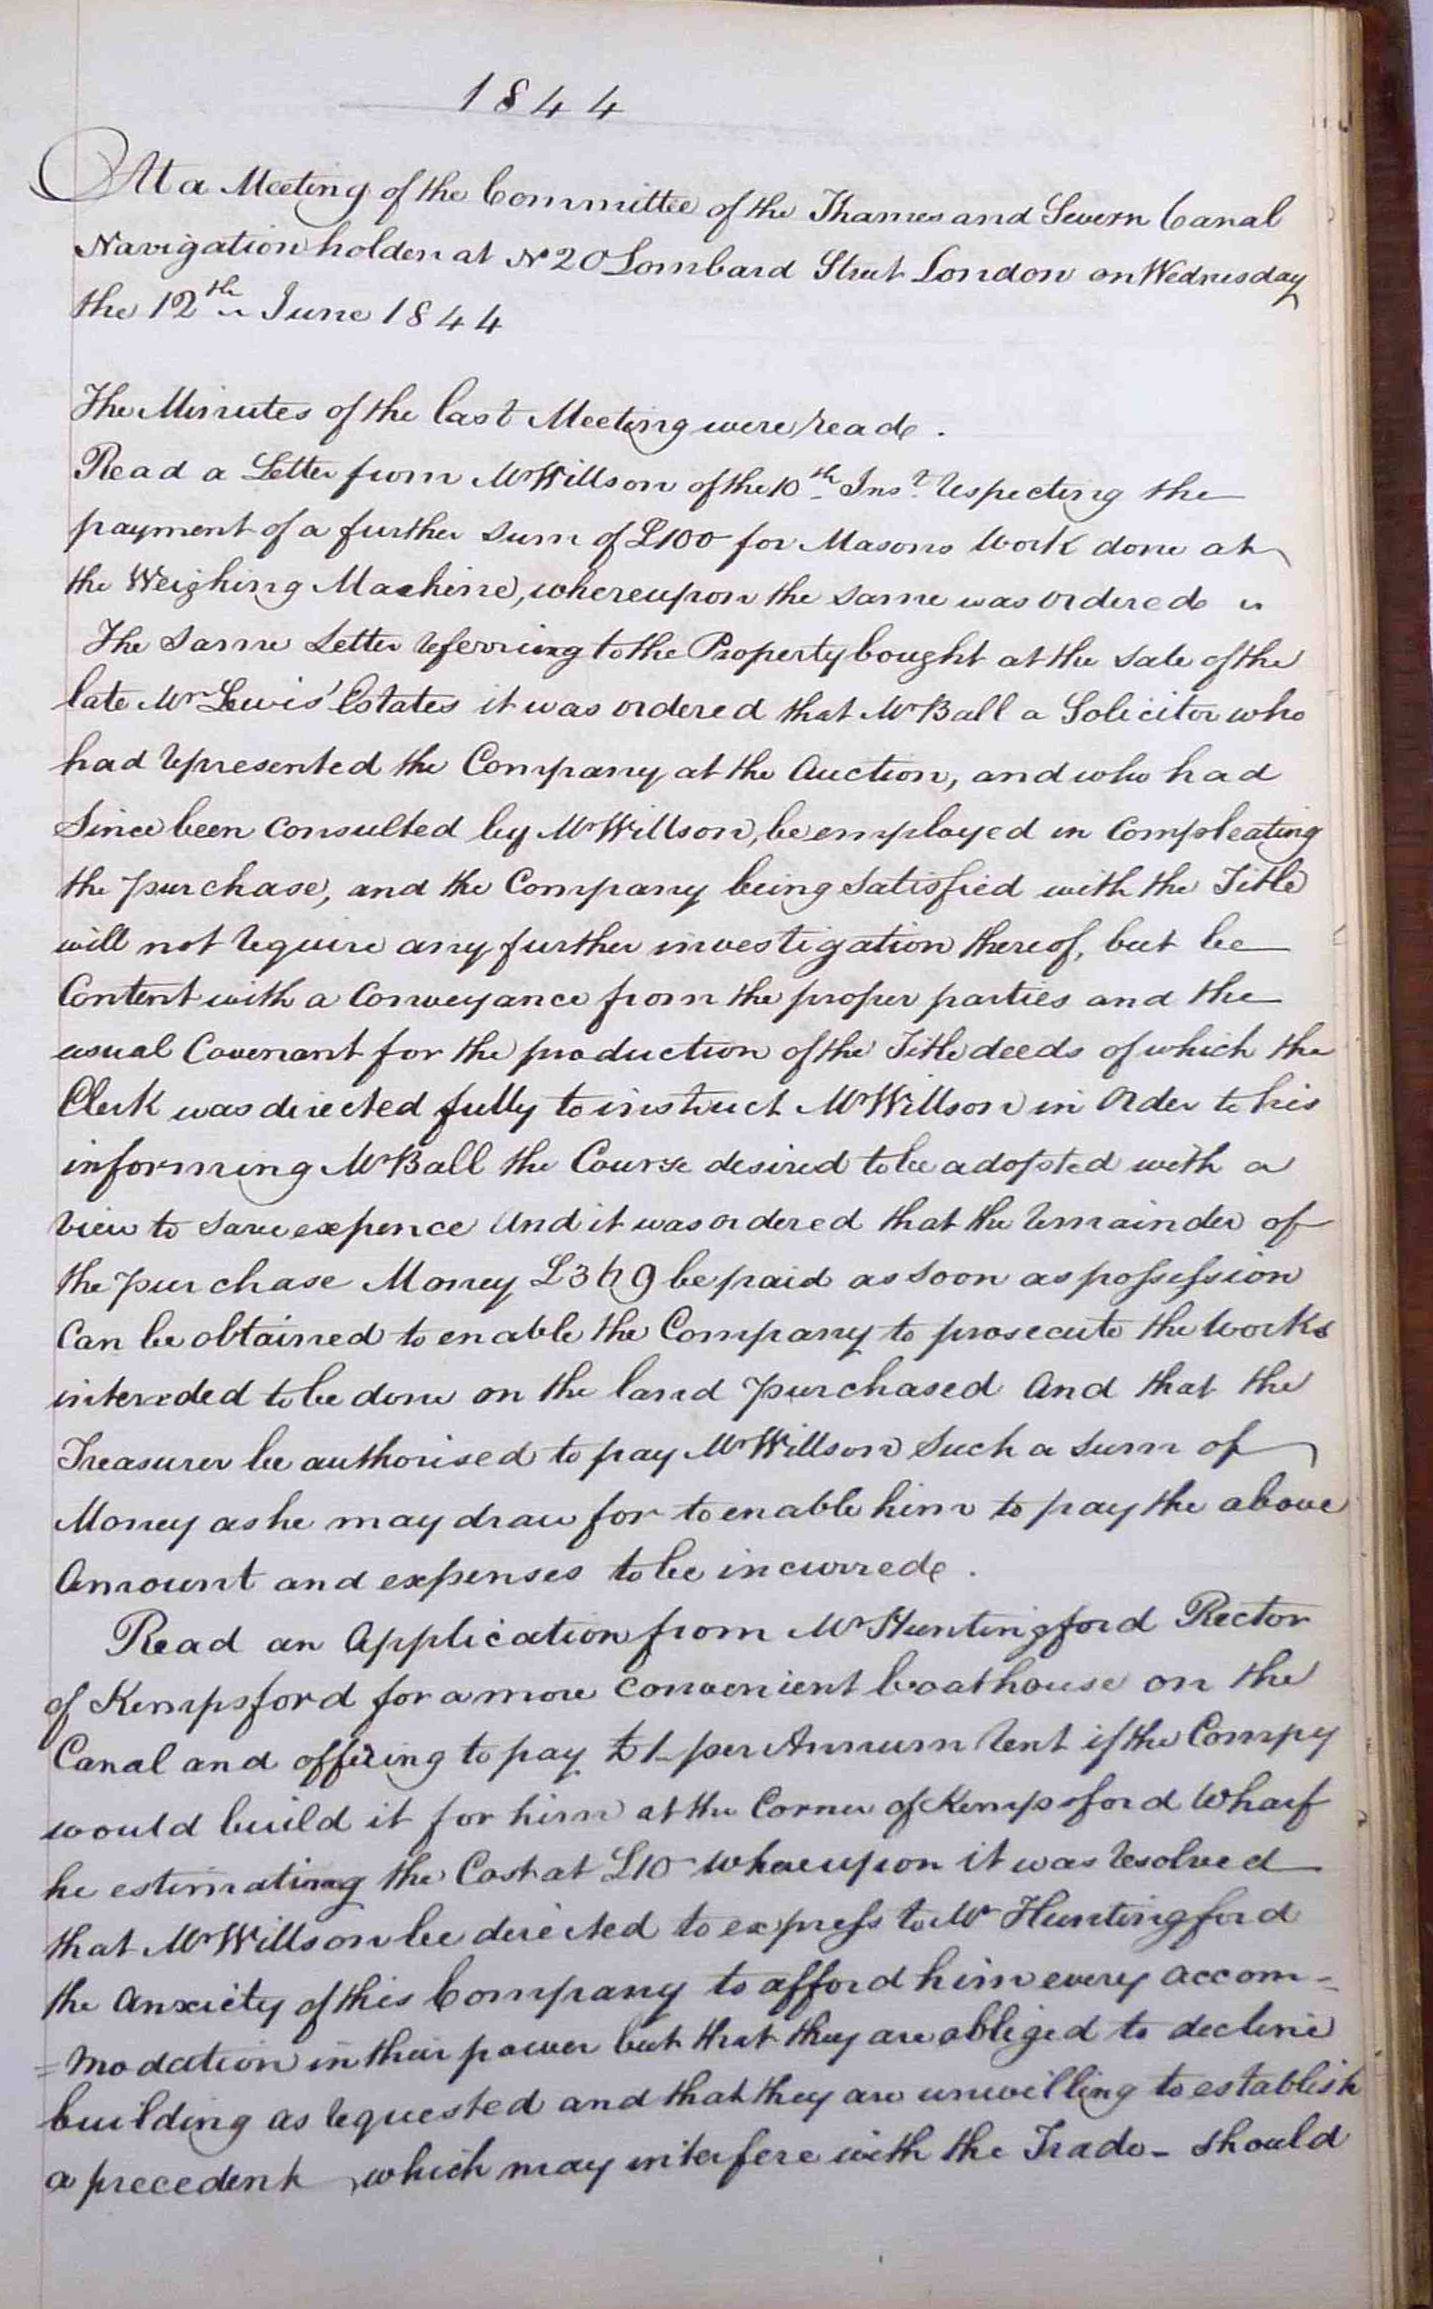 1844
At a Meeting of the Committee of the Thames and Severn Canal
Navigation holden at No 20 Lombard Street London on Wednesday
the 12th June 1844
The Minutes of the last Meeting were read.
Read a Letter from Mr Willson of the 10th Inst. respecting the
payment of a further sum of £100 for Masons Work done at
the Weighing Machine, whereupon the same was ordered "
The same Letter referring to the Property bought at the sale of the
late Mr Lewis' Estates it was ordered that Mr Ball a Solicitor who
had represented the Company at the Auction, and who had
Since been consulted by Mr Willson, be employed in compleating
the purchase, and the Company being satisfied with the Title
will not require any further investigation thereof, but be
Content with a Conveyance from the proper parties and the
usual Covenant for the production of the Title deeds of which the
Clerk was directed fully to instruct Mr Willson in Order to his
informing Mr Ball the Course desired to be adopted with a
view to save expence And it was ordered that the remainder of
the purchase Money £369 be paid as soon as possession
Can be obtained to enable the Company to prosecute the Works
intended to be done on the land purchased And that the
Treasurer be authorised to pay Mr Willson Such a sum of
Money as he may draw for to enable him to pay the above
Amount and expenses to be incurred.
Read an Application from Mr Huntingford Rector
of Kempsford for a more convenient boathouse on the
Canal and offering to pay £1 per Annum rent if the Compy
would build it for him at the Corner of Kempsford Wharf
he estimating the Cost at £10 whereupon it was resolved
that Mr Willson be directed to express to Mr Huntingford
the Anxiety of this Company to afford him every accom=
=modation in their power but that they are obliged to decline
building as requested and that they are unwilling to establish
a precedent, which may interfere with the Trade - should